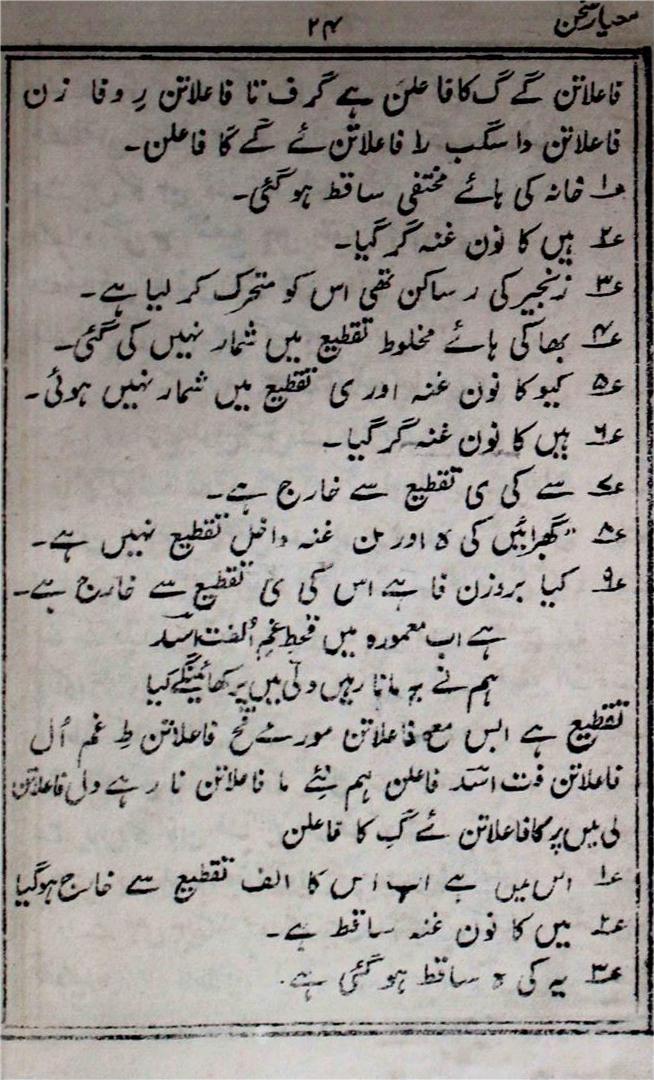 معیار سخن
۲۴
فاعلاتن گے گ کا فاعلن ہے گر ف تا فاعلاتن رِ وفا زن
فاعلاتن دا سگب را فاعلاتن ئے گے گا فاعلن۔
۱ خانہ کی ہائے مختفی ساقط ہو گئی۔
۲ ہیں کا نون غنہ گر گیا۔
۳ زنجیر کی ر ساکن تھی اس کو متحرک کر لیا ہے۔
۴ بھا کی ہائے مخلوط تقطیع میں شمار نہیں کی گئی۔
۵ کیو کا نون غنہ اور ی تقطیع میں شمار نہیں ہوئی۔
۶ ہیں کا نون غنہ گر گیا۔
۷ سے کی ی تقطیع سے خارج ہے۔
۸ گھبرائیں کی ہ اور ن غنہ داخل تقطیع نہیں ہے۔
۹ کیا بروزن فا ہے اس کی ی تقطیع سے خارج ہے۔
ہے اب معمورہ میں قحطِ غمِ اُلفت اسد
ہم نے یہ مانا رہیں دلی میں پر کھائینگے کیا
تقطیع ہے ابس مع فاعلاتن مورے قح فاعلاتن طِ غم اُل
فاعلاتن فت اسد فاعلن ہم نئے ما فاعلاتن نا رہے دل فاعلاتن
لی میں پر کا فاعلاتن ئے گے کا فاعلن
۱ اس میں ہے اب اس کا الف تقطیع سے خارج ہوگیا
۲ میں کا نون غنہ ساقط ہے۔
۳ یہ کی ہ ساقط ہو گئی ہے۔